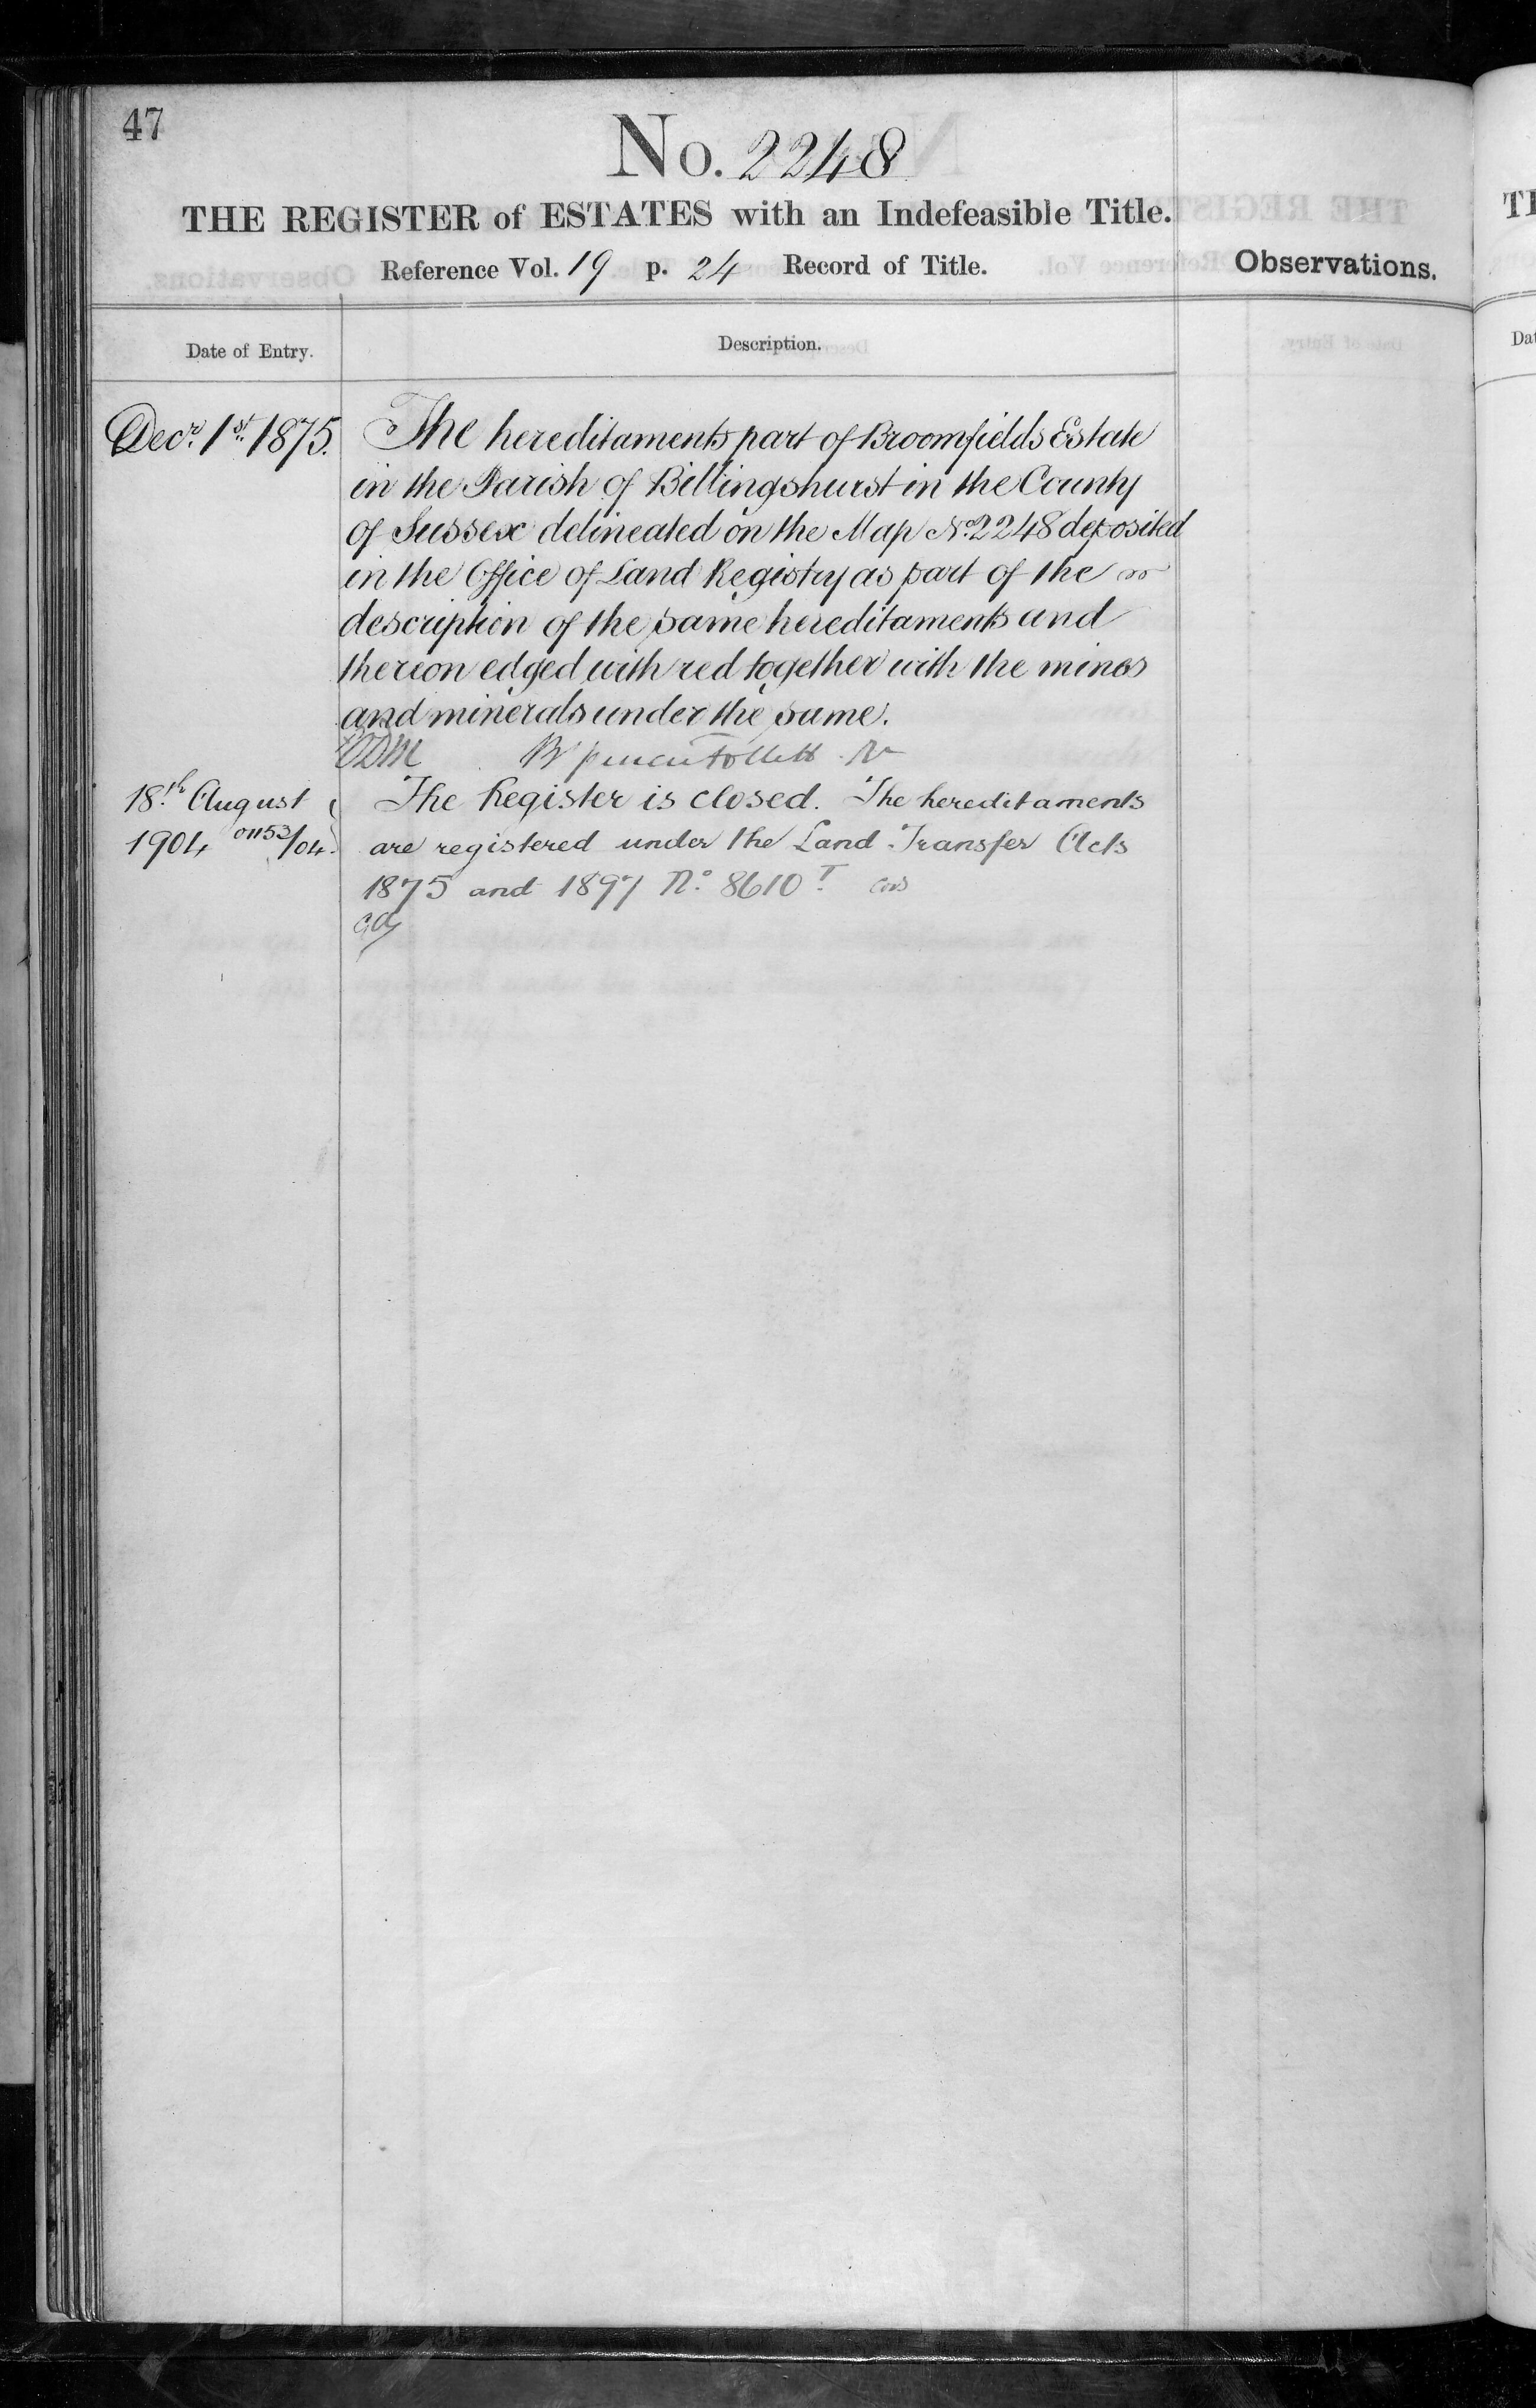 47
No. 2248
THE REGISTER of ESTATES with an Indefeasible Title.
Reference Vol. 19 p. 24 Record of Title.
Observations.
Date of Entry.
Description.
Decr. 1st. 1875.
The hereditaments part of Broomfields Estate
in the Parish of Billingshurst in the County
of Sussex delineated on the Map No. 2248 deposited
in the Office of Land Registry as part of the
description of the same hereditaments and
thereon edged with red together with the mines
and minerals under the same.
Follett
18.th August
1904 01153/04.
The Register is closed. The hereditaments
are registered under the Land Transfer Acts
1875 and 1897 No. 8610